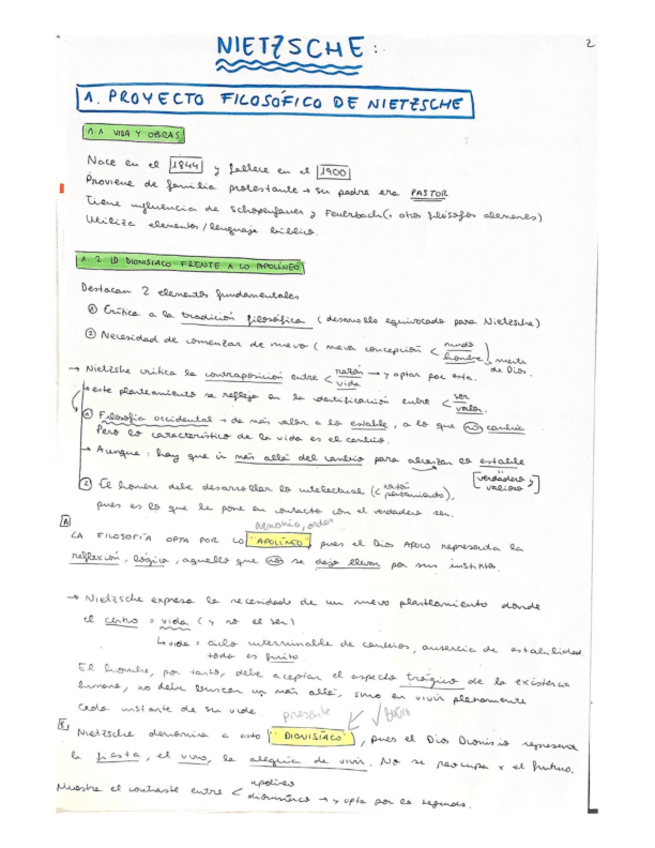 NIETZSCHE:
2
1. PROYECTO FILOSÓFICO DE NIETZSCHE
1.1 VIDA Y OBRAS
Nace en el 1844 y fallece en el 1900
Proviene de familia protestante → su padre era PASTOR
Tiene influencia de Schopenhauer y Feuerbach (+ otros filósofos alemanes)
Utiliza elementos/lenguaje bíblico.
1.2 LO DIONISIACO FRENTE A LO APOLÍNEO
Destacan 2 elementos fundamentales
① Crítica a la tradición filosófica (desarrollo equivocado para Nietzsche)
② Necesidad de comenzar de nuevo (nueva concepción < mundo hombre), muerte de Dios.
→ Nietzshe critica la contraposición entre < razón vida → y optar por esta.
→ este planteamiento se refleja en la identificación entre < ser valor.
① Filosofía occidental → da más valor a lo estable, a lo que no cambia
Pero lo característico de la vida es el cambio.
→ Aunque: hay que ir más allá del cambio para alcanzar lo estable
[verdadero y valioso]
② El hombre debe desarrollar lo intelectual (< razón pensamiento),
pues es lo que le pone en contacto con el verdadero ser.
armonía, orden
A
LA FILOSOFÍA OPTA POR LO "APOLÍNEO", pues el Dios Apolo representa la
reflexión, lógica, aquello que no se deja llevar por sus instintos.
→ Nietzsche expresa la necesidad de un nuevo planteamiento donde
el centro = vida (y no el ser)
↳ vida = ciclo interminable de cambios, ausencia de estabilidad,
todo es finito
El hombre, por tanto, debe aceptar el aspecto trágico de la existencia
humana, no debe buscar un más allá, sino en vivir plenamente
cada instante de su vida.
presente
Nietzsche denomina a esto "DIONISÍACO", pues el Dios Dionisio representa
la fiesta, el vino, la alegría de vivir. No se preocupa x el futuro.
Muestra el contraste entre < apolíneo dionisíaco → y opta por lo segundo.